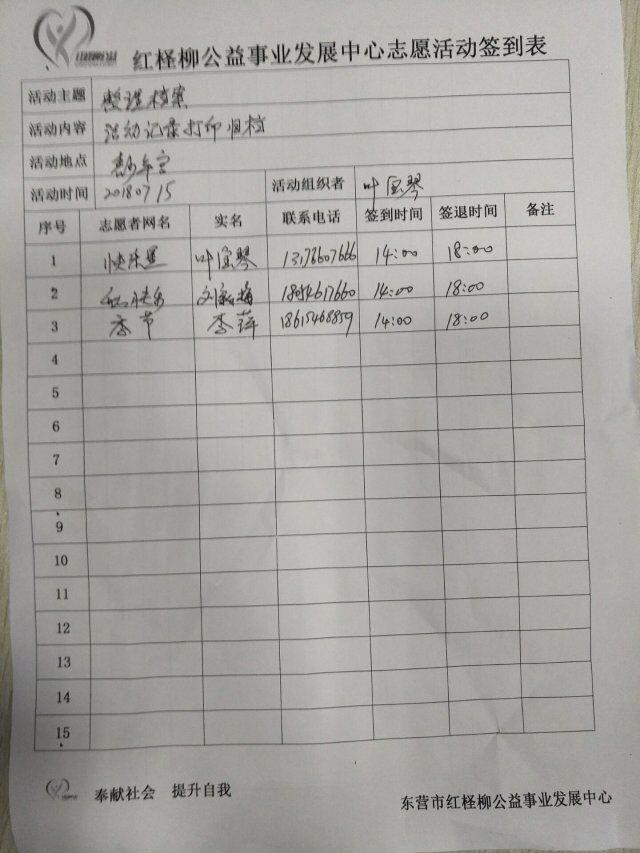 红柽柳公益事业发展中心志愿活动签到表
活动主题 整理档案
活动内容 活动记录打印归档
活动地点 青少年宫
活动时间 20180715 活动组织者 叶宝琴
序号 志愿者网名 实名 联系电话 签到时间 签退时间 备注
1 快乐 叶宝琴 13176607666 14:00 18:00
2 18054617660 14:00 18:00
3 季节 李萍 18615468859 14:00 18:00
4
5
6
7
8
9
10
11
12
13
14
15
奉献社会 提升自我
东营市红柽柳公益事业发展中心